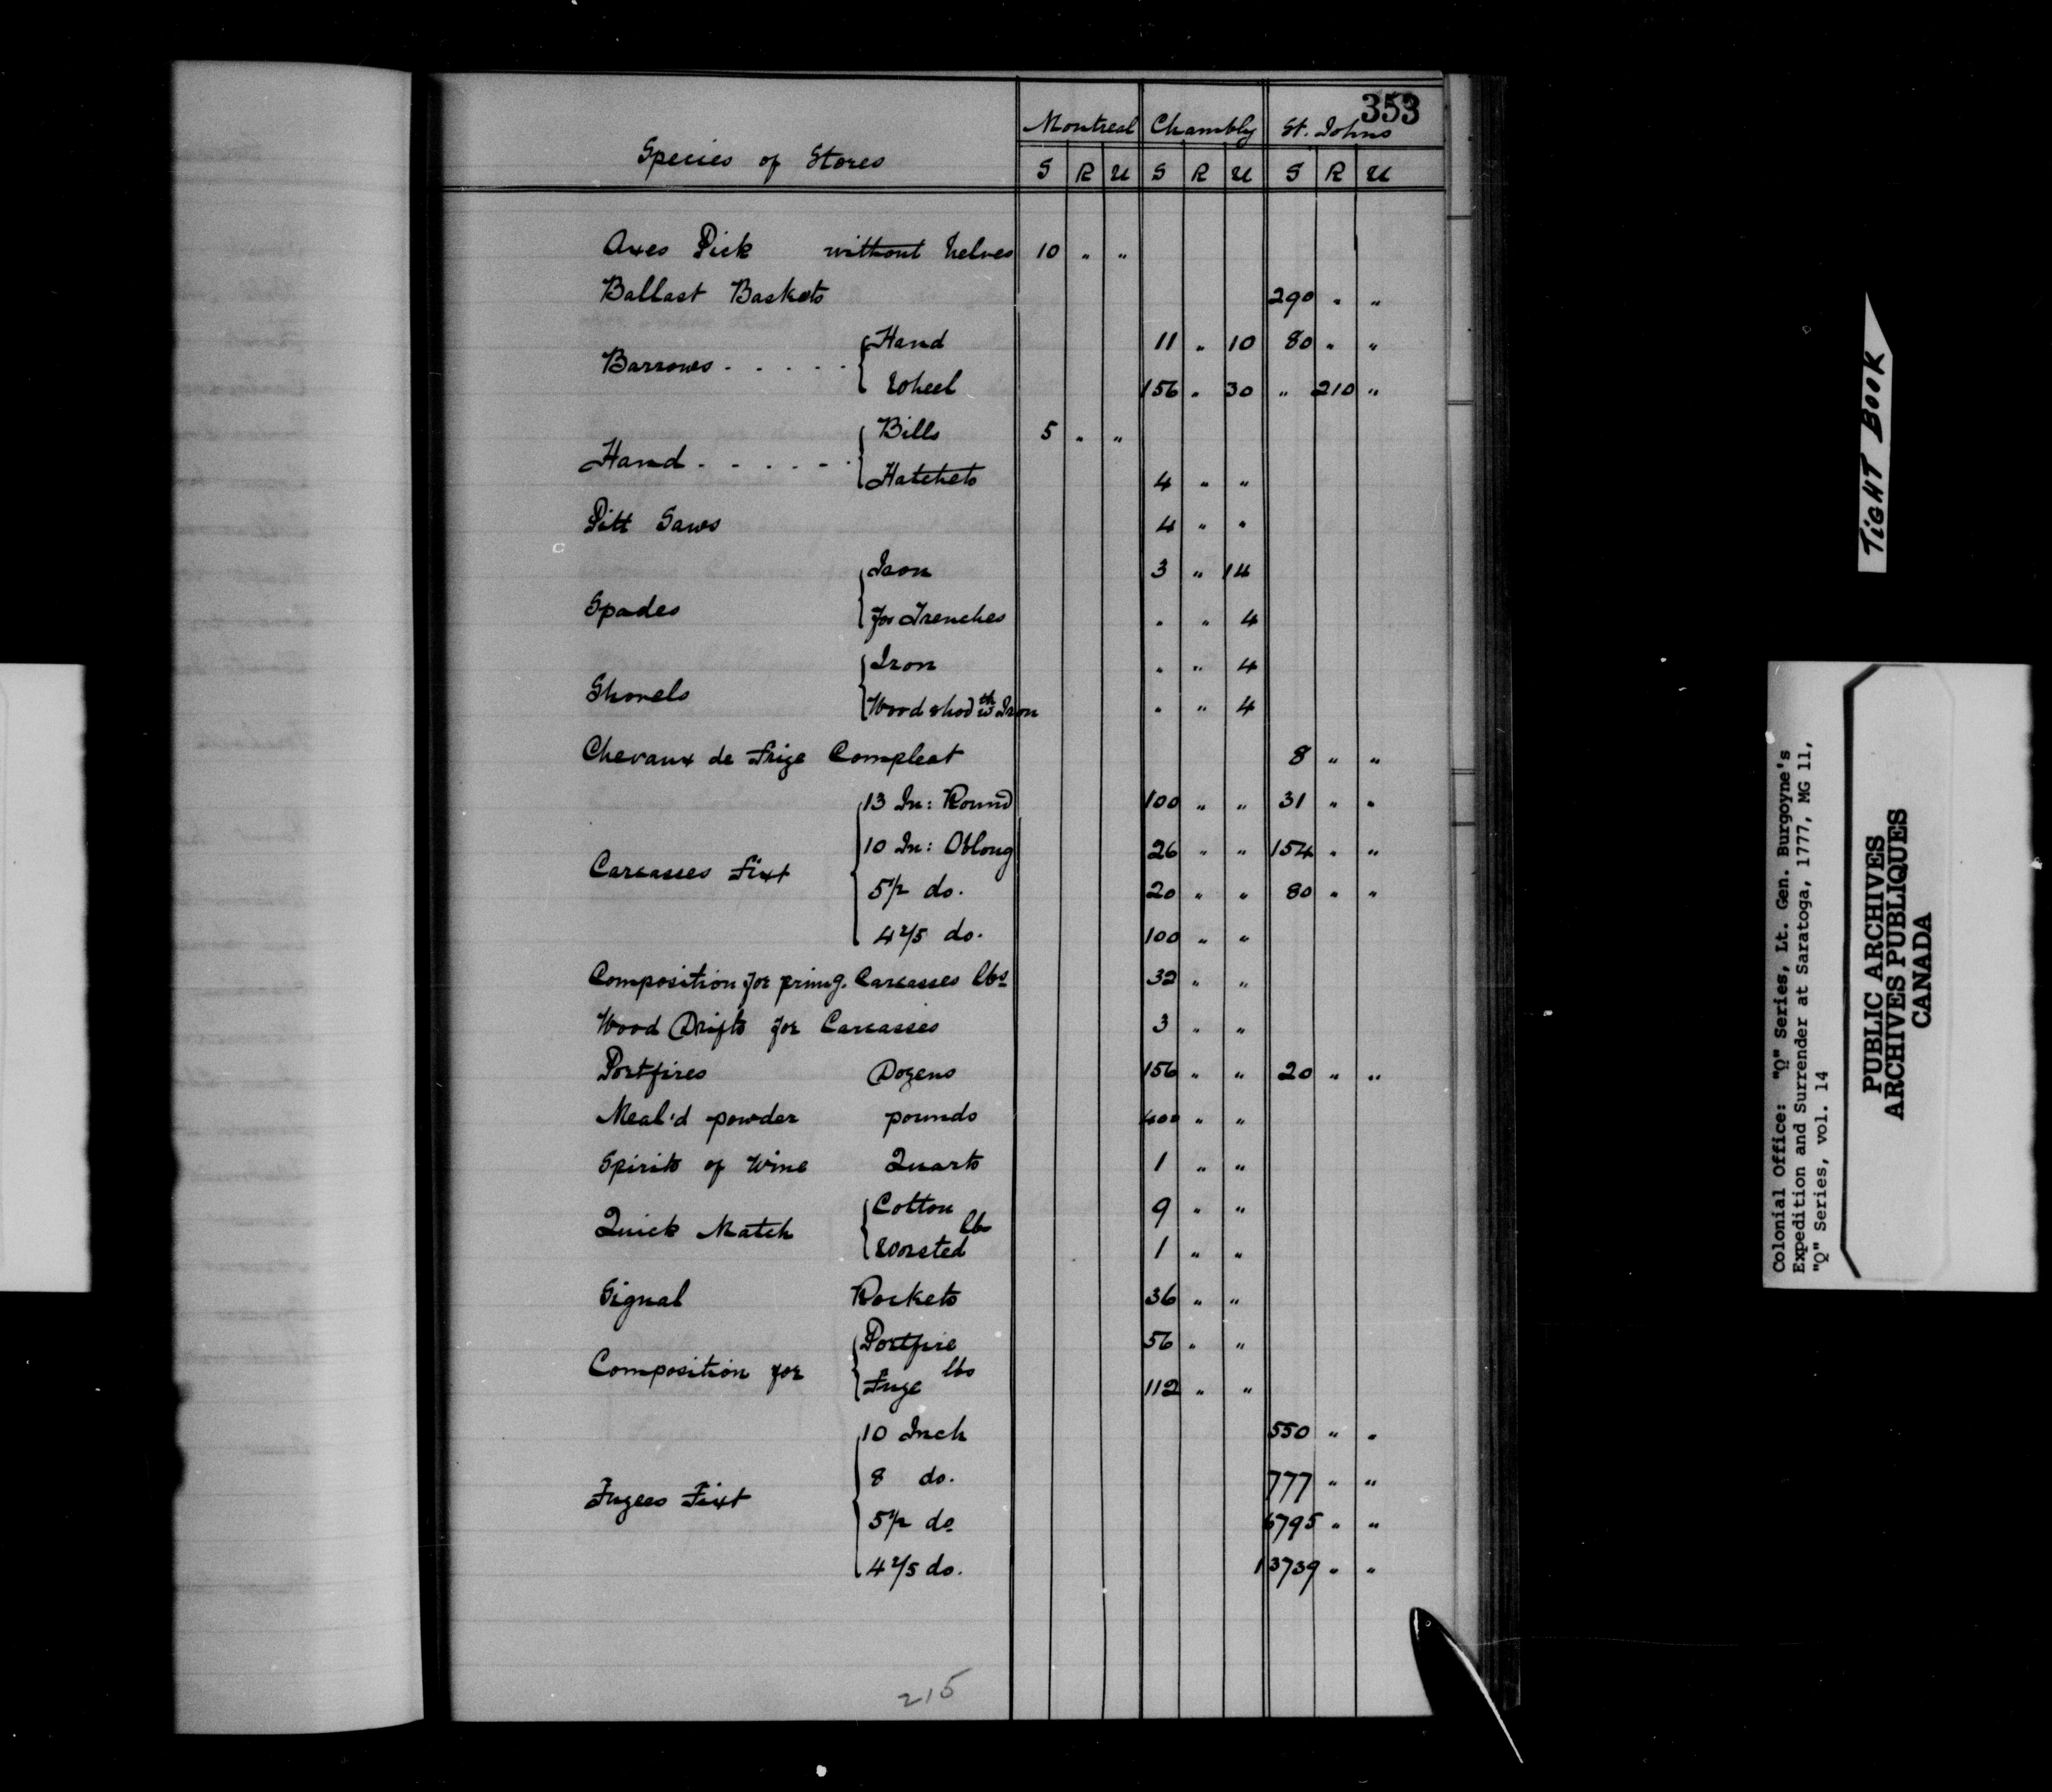 353
Montreal Chambly St. Johns
Species of Stores
S R U S R U S R U
Axes Pick without helves 10 " "
Ballast Baskets 290 " "
Barrows - - - - - { Hand 11 " 10 80 " "
Wheel 156 " 30 " 210 "
Hand - - - - - - { Bills 5 " "
Hatchets 4 " "
Pitt Saws 4 " "
Spades { Iron 3 " 14
for Trenches " " 4
Shovels { Iron " " 4
Wood shod wth Iron " " 4
Chevaux de Frize Compleat 8 " "
Carcasses Fixt { 13 In: Round 100 " " 31 " "
10 In: Oblong 26 " " 154 " "
5½ do. 20 " " 80 " "
4 2/5 do. 100 " "
Composition for priming. Carcasses lbs 32 " "
Wood Drifts for Carcasses 3 " "
Portfires Dozens 156 " " 20 " "
Meal'd powder pounds 400 " "
Spirits of Wine Quarts 1 " "
Quick Match { Cotton lbs 9 " "
Worsted 1 " "
Signal Rockets 36 " "
Composition for { Portfire lbs 56 " "
Fuze 112 " "
Fuzees Fixt { 10 Inch 550 " "
8 do. 777 " "
5½ do 6795 " "
4 2/5 do. 13739 " "
215
TIGHT BOOK
Colonial Office: "Q" Series, Lt. Gen. Burgoyne's
Expedition and Surrender at Saratoga, 1777, MG 11,
"Q" Series, vol. 14
PUBLIC ARCHIVES
ARCHIVES PUBLIQUES
CANADA